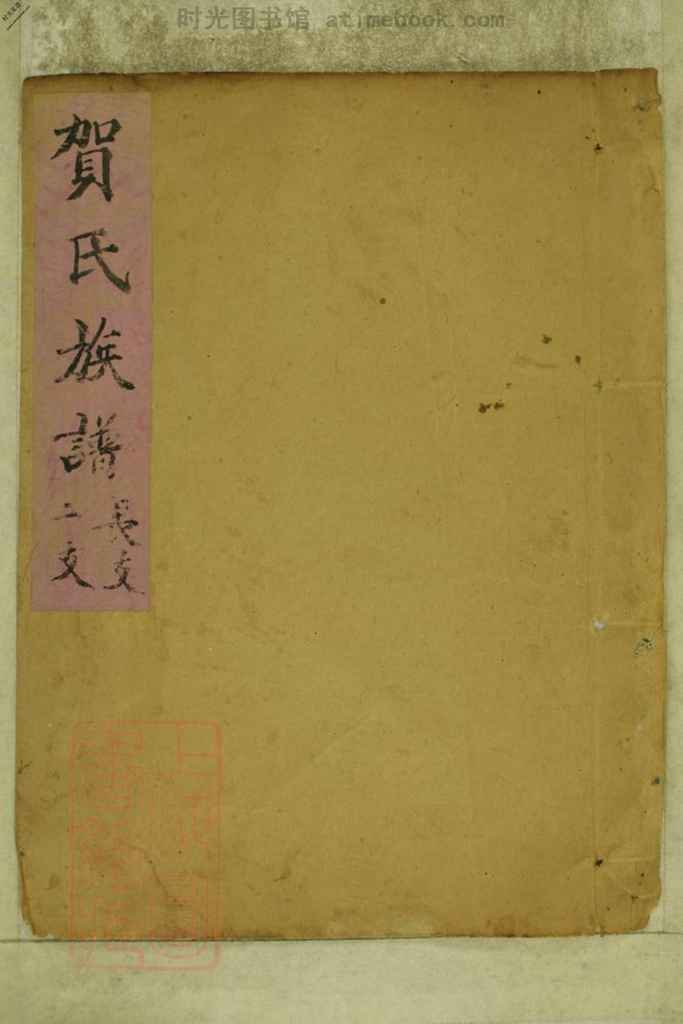 时光图书馆 atimebook.com
賀氏族譜
長支
二支